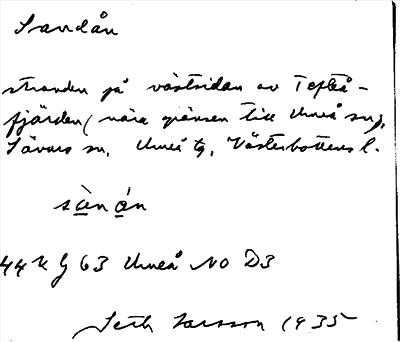 Sandån
stranden på västsidan av Tefteå-
fjärden (nära gränsen till Umeå sn),
Sävars sn, Umeå tg, Västerbottens l.
sὰn ǻn
44 K g 63 Umeå NO D3
Seth Larsson 1935